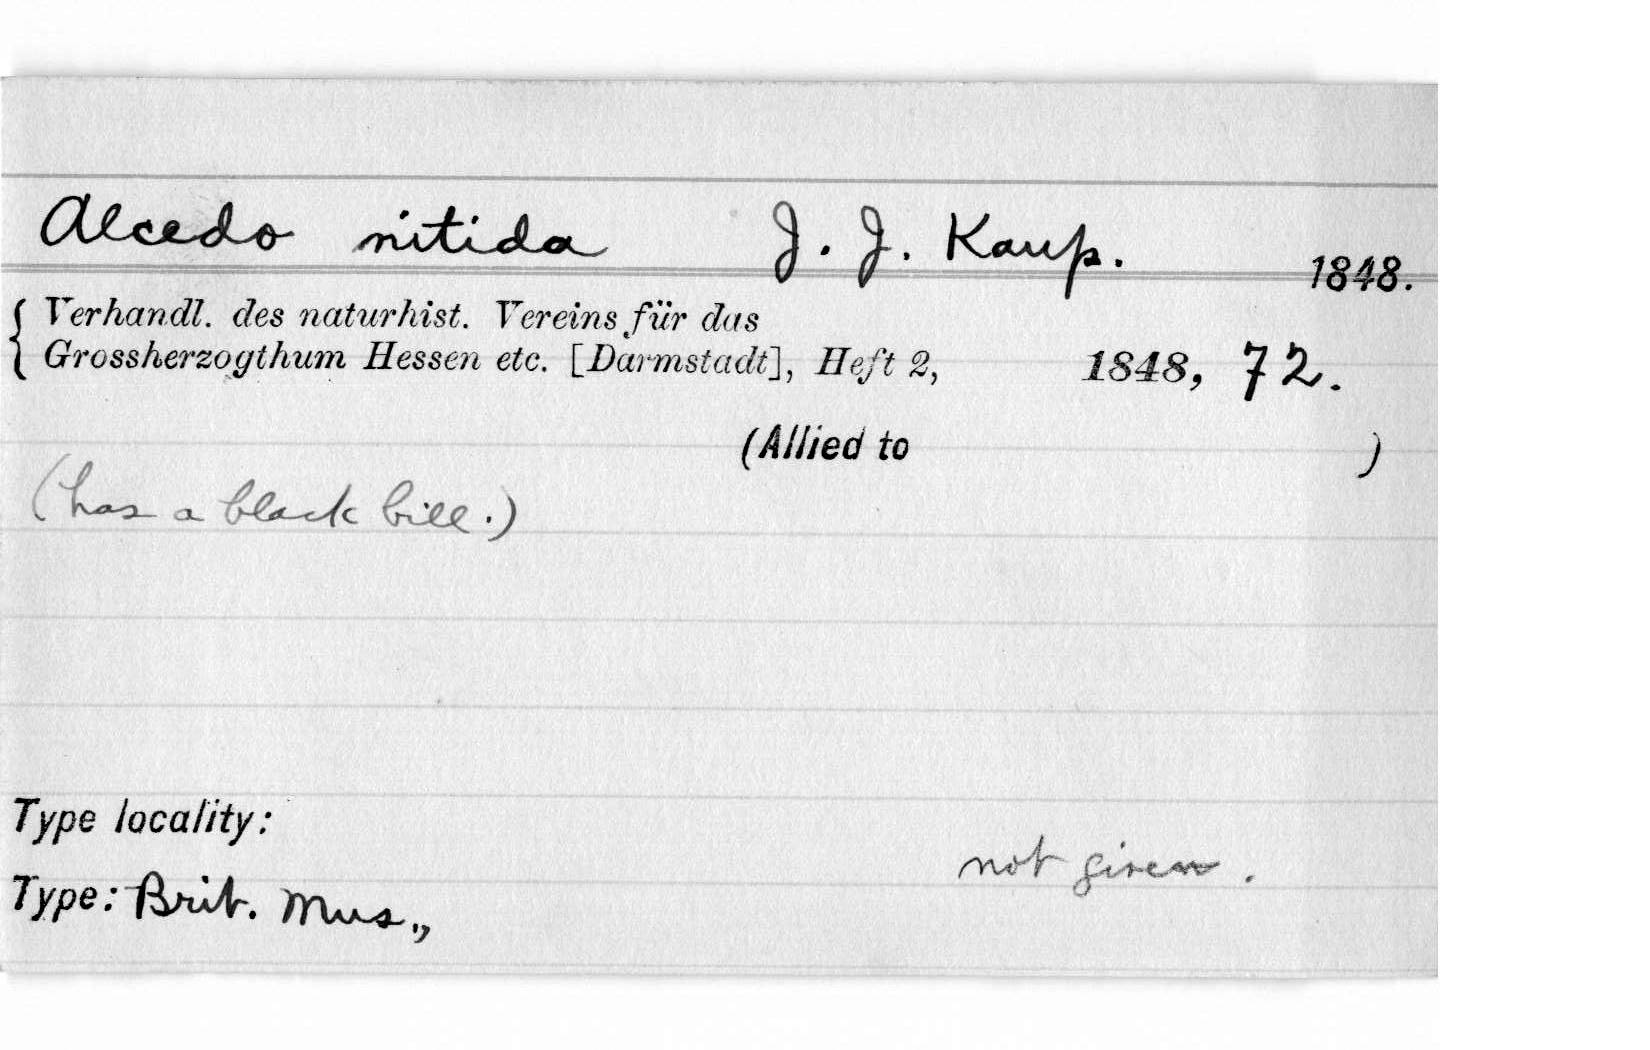 Alcedo nitida J. J. Kaup. 1848.
{ Verhandl. des naturhist. Vereins für das
Grossherzogthum Hessen etc. [Darmstadt], Heft 2, 1848, 72.
(Allied to )
(has a black bill.)
Type locality:
not given.
Type: Brit. Mus.,